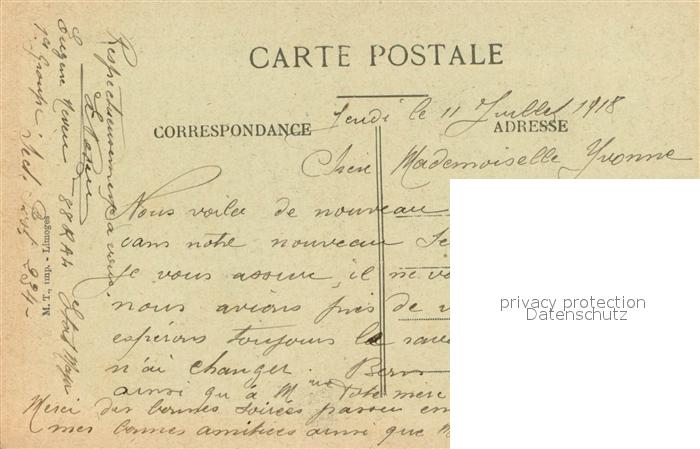 CARTE POSTALE
CORRESPONDANCE
ADRESSE
Jeudi le 11 Juillet 1918
Chère Mademoiselle Yvonne
Nous voila de nouveau
dans notre nouveau Se
je vous assure il ne vo
nous avions pris de v
espérons toujours le rave
n'ai changer. Bern
ainsi qu'à Mme votre mere
Merci des bonnes soirées passer en
mes bonnes amitiées ainsi que M
Respectueusement à vous
Eugène
88 RAL Etat Major
1er Groupe Sect. 234
M. T. imp. - Limoges
privacy protection
Datenschutz